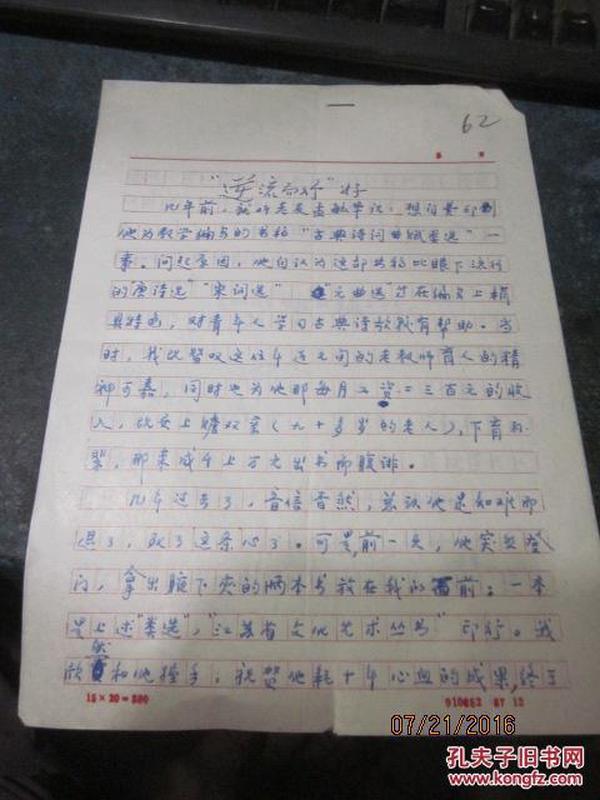 62
"逆流而行"好
几年前，我的老友
他为教学编写的书稿"古典诗词曲赋类选"一
事。问起原因，他自认为这部书稿比眼下流行
的"唐诗选""宋词选" "元曲选"等在编写上稍
具特色，对青年人学习古典诗歌或有帮助。当
时，我比赞叹这位年近七旬的老教师育人的精
神可嘉，同时也为他那每月工资二三百元的收
入，既要上赡双亲（九十多岁的老人），下育
那来成千上万元出书而腹诽。
几年过去了，音信杳然，总认他是知难而
退了，耿了这条心了。可是，前一天，他突然登
门，拿出腋下夹的两本书放在我的面前：一本
是上述"类选"，"江苏省文化艺术丛书"印行。我
欣然和他握手，祝贺他耗十年心血的成果，终于
15×20=300
910652 87 12
07/21/2016
孔夫子旧书网
www.kongfz.com